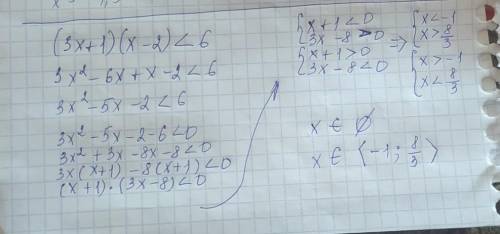 (3x+1)(x-2)<6
3x²-6x+x-2<6
3x²-5x-2<6
3x²-5x-2-6<0
3x²+3x-8x-8<0
3x(x+1)-8(x+1)<0
(x+1)·(3x-8)<0
{x+1<0 => {x<-1
{3x-8>0 {x>8/3
{x+1>0 {x>-1
{3x-8<0 {x<8/3
x∈∅
x∈⟨-1; 8/3⟩